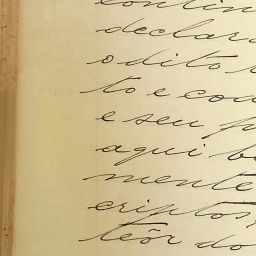 contin
declar
o dito
to e con
e seu p
aqui b
mente
criptos,
teôr do